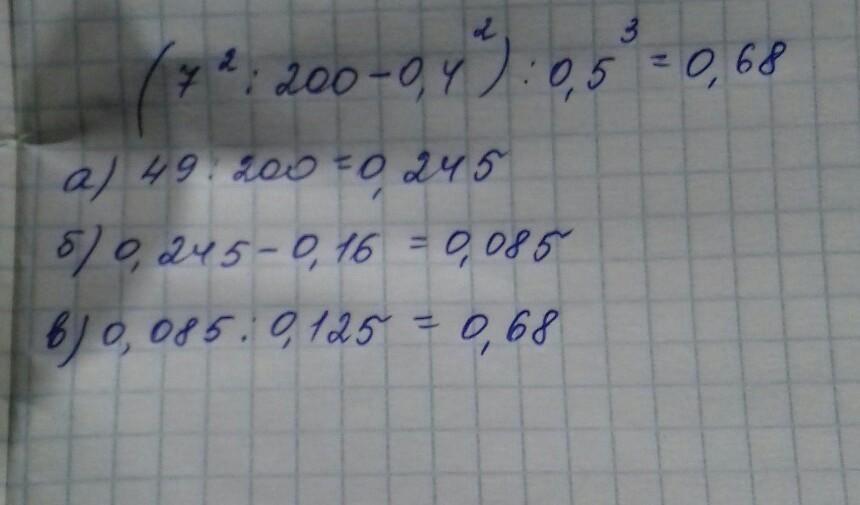 (7² : 200 - 0,4²) : 0,5³ = 0,68
а) 49 : 200 = 0,245
б) 0,245 - 0,16 = 0,085
в) 0,085 : 0,125 = 0,68